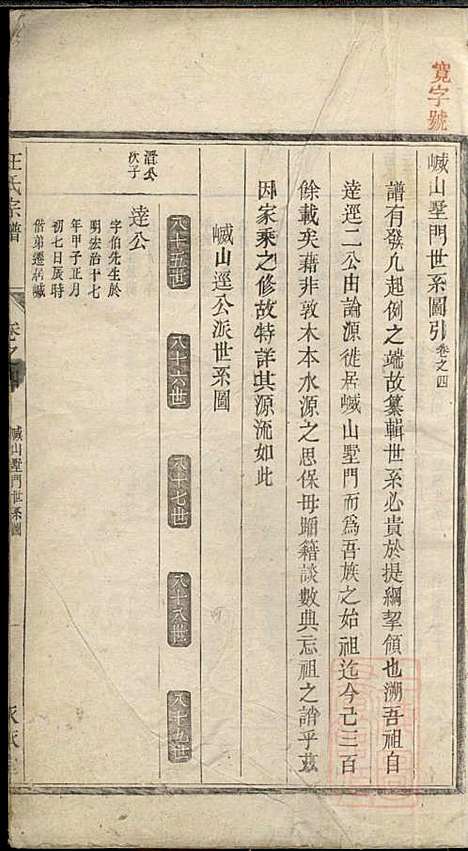 寬字號
巇山墅門世系圖引 卷之四
譜有發凡起例之端故纂輯世系必貴於提綱挈領也溯吾祖自
達逕二公由論源徙居巇山墅門而為吾族之始祖迄今已三百
餘載矣藉非敦木本水源之思保毋貽籍談數典忘祖之誚乎茲
因家乘之修故特詳其源流如此
巇山逕公派世系圖
八十五世
八十六世
八十七世
八十八世
八十九世
公
次子
達公
字伯先生於
明宏治十七
年甲子正月
初七日辰時
偕弟遷居巇
汪氏宗譜
卷之
巇山墅門世系圖
一